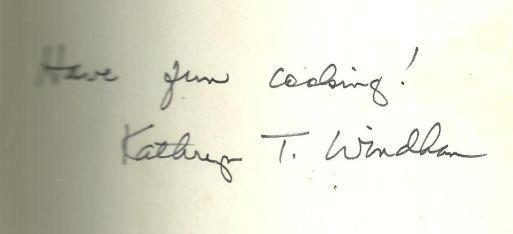 Have fun cooking!
Kathryn T. Windham